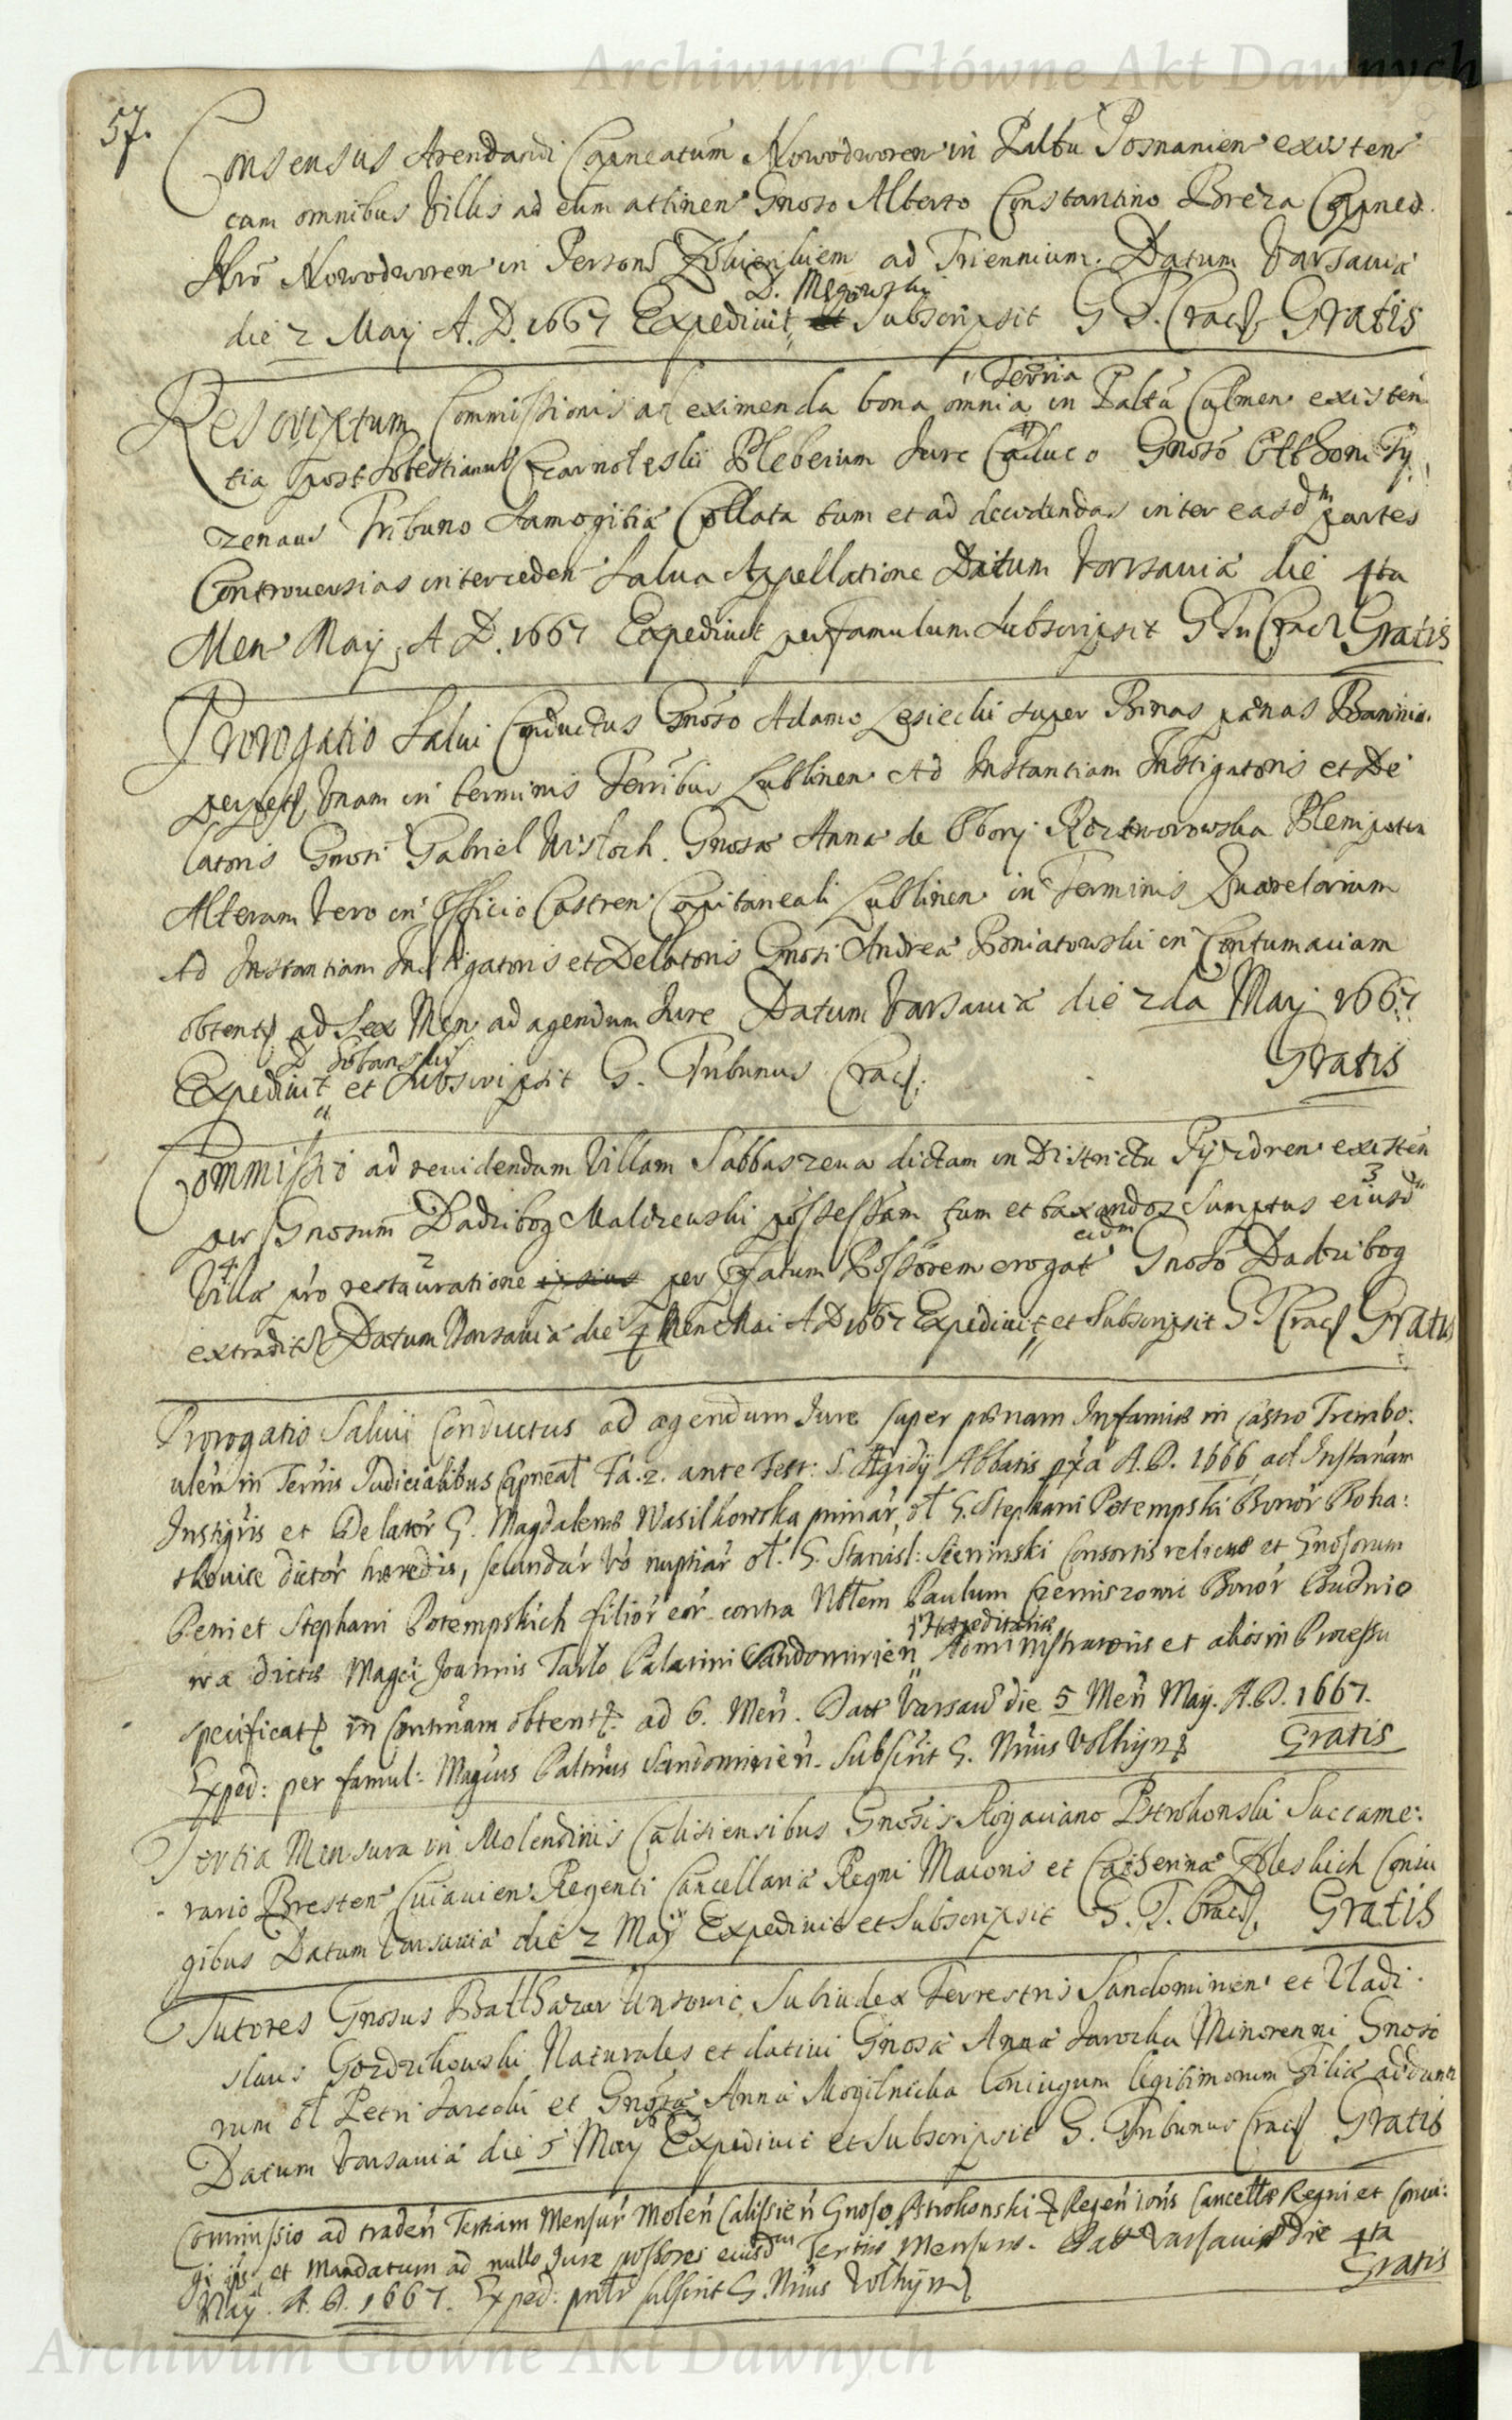 Archiwum Główne Akt Dawnych
57.
Consensus Arendandi Capneatum Nowodworen in Paltu Posnanien existen
cum omnibus Villis ad eum attinen Gnoso Alberto Constantino Breza Capneo
Nowodworen in Person ad Triennium. Datum Varsaviæ
D. Męgowski
die 2 Maij A. D. 1667 Expedivit et Subscripsit G T. Crac Gratis
Terria
Rescriptum Commissionis ad eximenda bona omnia in Paltu Culmen existen
tia post Sobestianum Czarnolęski Pleberium Jure Caduco Gnoso Otthoni Ty
zenaus Tribuno Samogitiæ Collata tum et ad decidendas inter easd partes
Controversias interceden Salva Appellatione Datum Varsaviæ die 4ta
Men Maij A D. 1667 Expedivit per famulum Subscripsit G Tn Crac Gratis
Prorogatio Salvi Conductus Gnoso Adamo Lesiecki super Binas pænas Bannia.
perpet Unam in terminis Terribus Lublinen Ad Instantiam Instigatoris et De
latoris Gnosi Gabriel Gnosæ Anna de Obory Roztworowska Plenipoten
Alteram Vero in Officio Castren Capitaneali Lublinen in Terminis Quærelarum
Ad Instantiam Instigatoris et Delatoris Gnosi Andreæ Poniatowski in Contumaciam
obtent ad Sex Men ad agendum Jure Datum Varsaviæ die 2da Maij 1667
Gratis
Expedivit et Subscripsit G. Tribunus Crac.
Commissio ad revidendam Villam Sabbaszewa dictam in Districtu Pyzdren existen
3
per Gnosum Dadzibog Malczewski possessam tum et taxandos Sumptus eiusd
4 2 eidm
Villæ pro restauratione ipsius per pfatum Possorem erogat Gnoso Dadzibog
extradit Datum Varsaviæ die 4 Men Mai A D 1667 Expedivit et Subscripsit G T Crac Gratis
Prorogatio Salvi Conductus ad agendum Jure super pænam Infamiæ in Castro Trembo:
ulen in Termis Judicialibus Capneal Fa. 2. ante Fest: S. Ægidij Abbatis pxa A. D. 1666 ad Instanam
Instigris et Delator G. Magdalenæ Wasilkowska primar, ol G. Stephani Potempski Bonor Boha:
tkowice dictor hæredis, secundar vo nuptiar ol. G. Stanisl: Sieninski Consortis relictæ et Gnosorum
Petri et Stephani Potempskich filior eor contra Nblem Paulum Czerniszowic Bonor Budnio
Hæreditariæ
wa dictæ Magci Joannis Tarlo Palatini Sandomirien Administratoris et alios in Processu
specificat in Contuam obtent. ad 6. Men. Datt Varsav die 5 Men Maij. A. D. 1667.
Exped: per famul: Magcus Paltnus Sandomirien. Subscrit G. Nrius Volhijn Gratis
Tertia Mensura in Molendinis Calisiensibus Gnosis Royaciano Pstrokonski Succame:
rario Bresten Cuiavien Regenti Cancellariæ Regni Maioris et Catherinæ Coniu
gibus Datum Varsaviæ die 2 Maij Expedivit et Subscripsit G. T. Crac. Gratis
Tutores Gnosus Balthazar Subiudex Terrestris Sandomirien et Vladi
slaus Gozdzikowski Naturales et dativi Gnosæ Annæ Jarocka Minorenni Gnoso
rum ol Petri Jarocki et Gnosæ Annæ Mogilnicka Coniugum legitimorum Filiæ addunt
Datum Varsaviæ die 5 Maij Expedivit et Subscripsit G. Tribunus Crac Gratis
Commissio ad traden Tertiam Mensur Molen Calissien Gnoso Pstrokonski Regen ioris Cancellæ Regni et Coniu:
gi ips et Mandatum ad nullo Jure possores eiusd Tertiæ Mensuræ. Datt Varsaviæ die 4ta
Maij. A. D. 1667. Exped: pntr subscrit G. Nrius Volhijn Gratis
Archiwum Główne Akt Dawnych